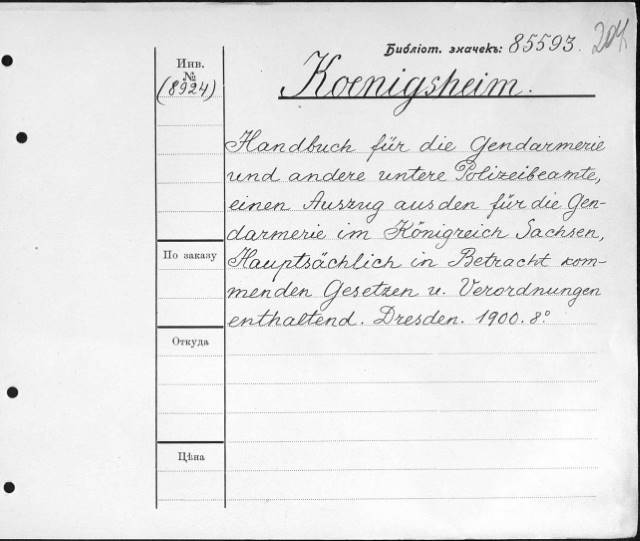 Библіот. значекъ: 85593. 204
Инв.
№
(8924)
Koenigsheim.
Handbuch für die Gendarmerie
und andere untere Polizeibeamte,
einen Auszug aus den für die Gen-
darmerie im Königreich Sachsen,
Hauptsächlich in Betracht kom-
menden Gesetzen u. Verordnungen
enthaltend. Dresden. 1900. 8.º
По заказу
Откуда
Цѣна